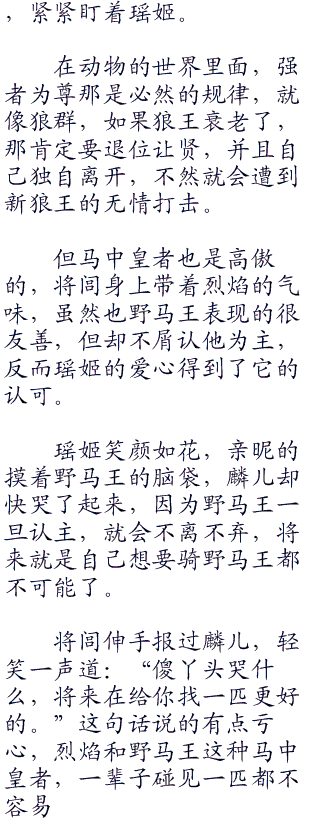 ，紧紧盯着瑶姬。
在动物的世界里面，强
者为尊那是必然的规律，就
像狼群，如果狼王衰老了，
那肯定要退位让贤，并且自
己独自离开，不然就会遭到
新狼王的无情打击。
但马中皇者也是高傲
的，将闾身上带着烈焰的气
味，虽然也野马王表现的很
友善，但却不屑认他为主，
反而瑶姬的爱心得到了它的
认可。
瑶姬笑颜如花，亲昵的
摸着野马王的脑袋，麟儿却
快哭了起来，因为野马王一
旦认主，就会不离不弃，将
来就是自己想要骑野马王都
不可能了。
将闾伸手报过麟儿，轻
笑一声道：“傻丫头哭什
么，将来在给你找一匹更好
的。”这句话说的有点亏
心，烈焰和野马王这种马中
皇者，一辈子碰见一匹都不
容易